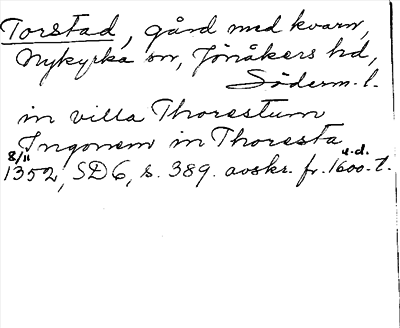 Torstad, gård med kvarn,
Nykyrka sn, Jönåkers hd,
Söderm. l.
in villa Thorestum
Ingonem in Thoresta
8/11 u.d.
1352, SD6, s. 389. avskr. fr. 1600-t.